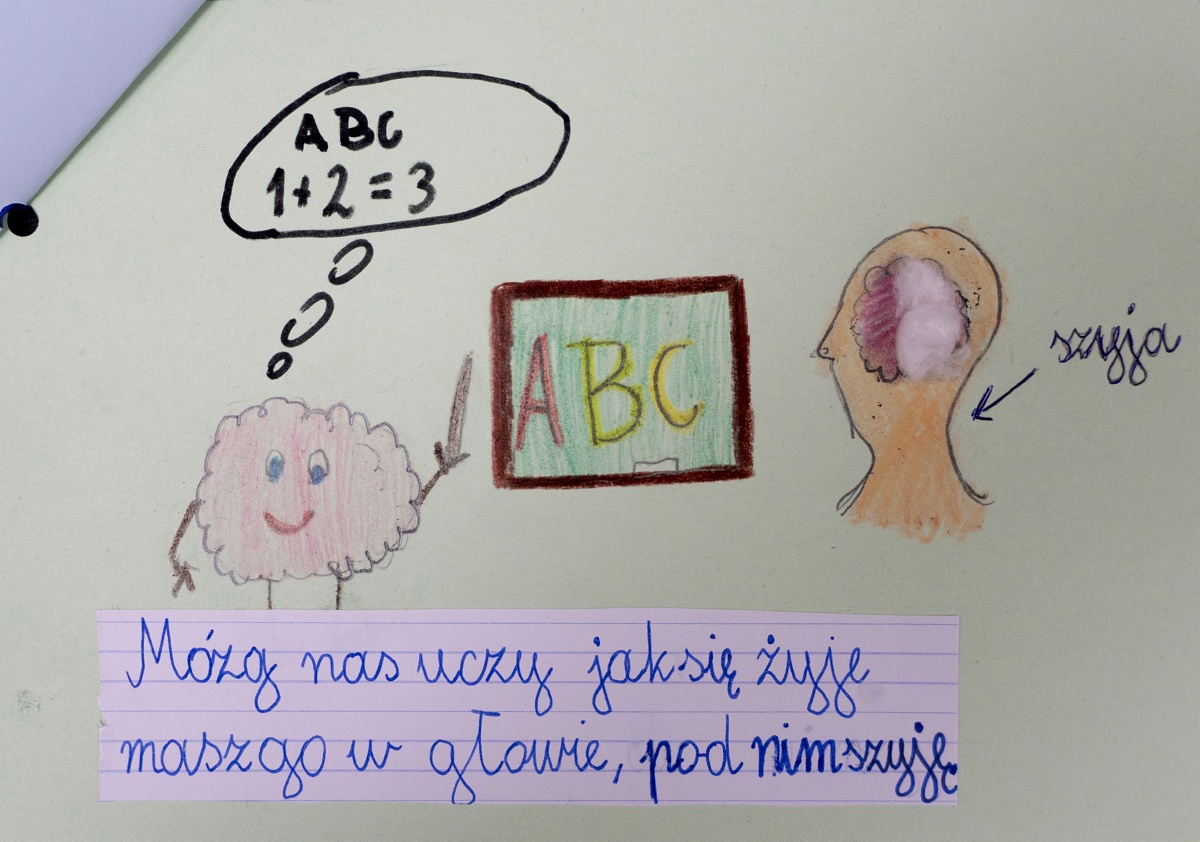 ABC
1+2=3
ABC
szyja
Mózg nas uczy jak się żyje
masz go w głowie, pod nim szyję